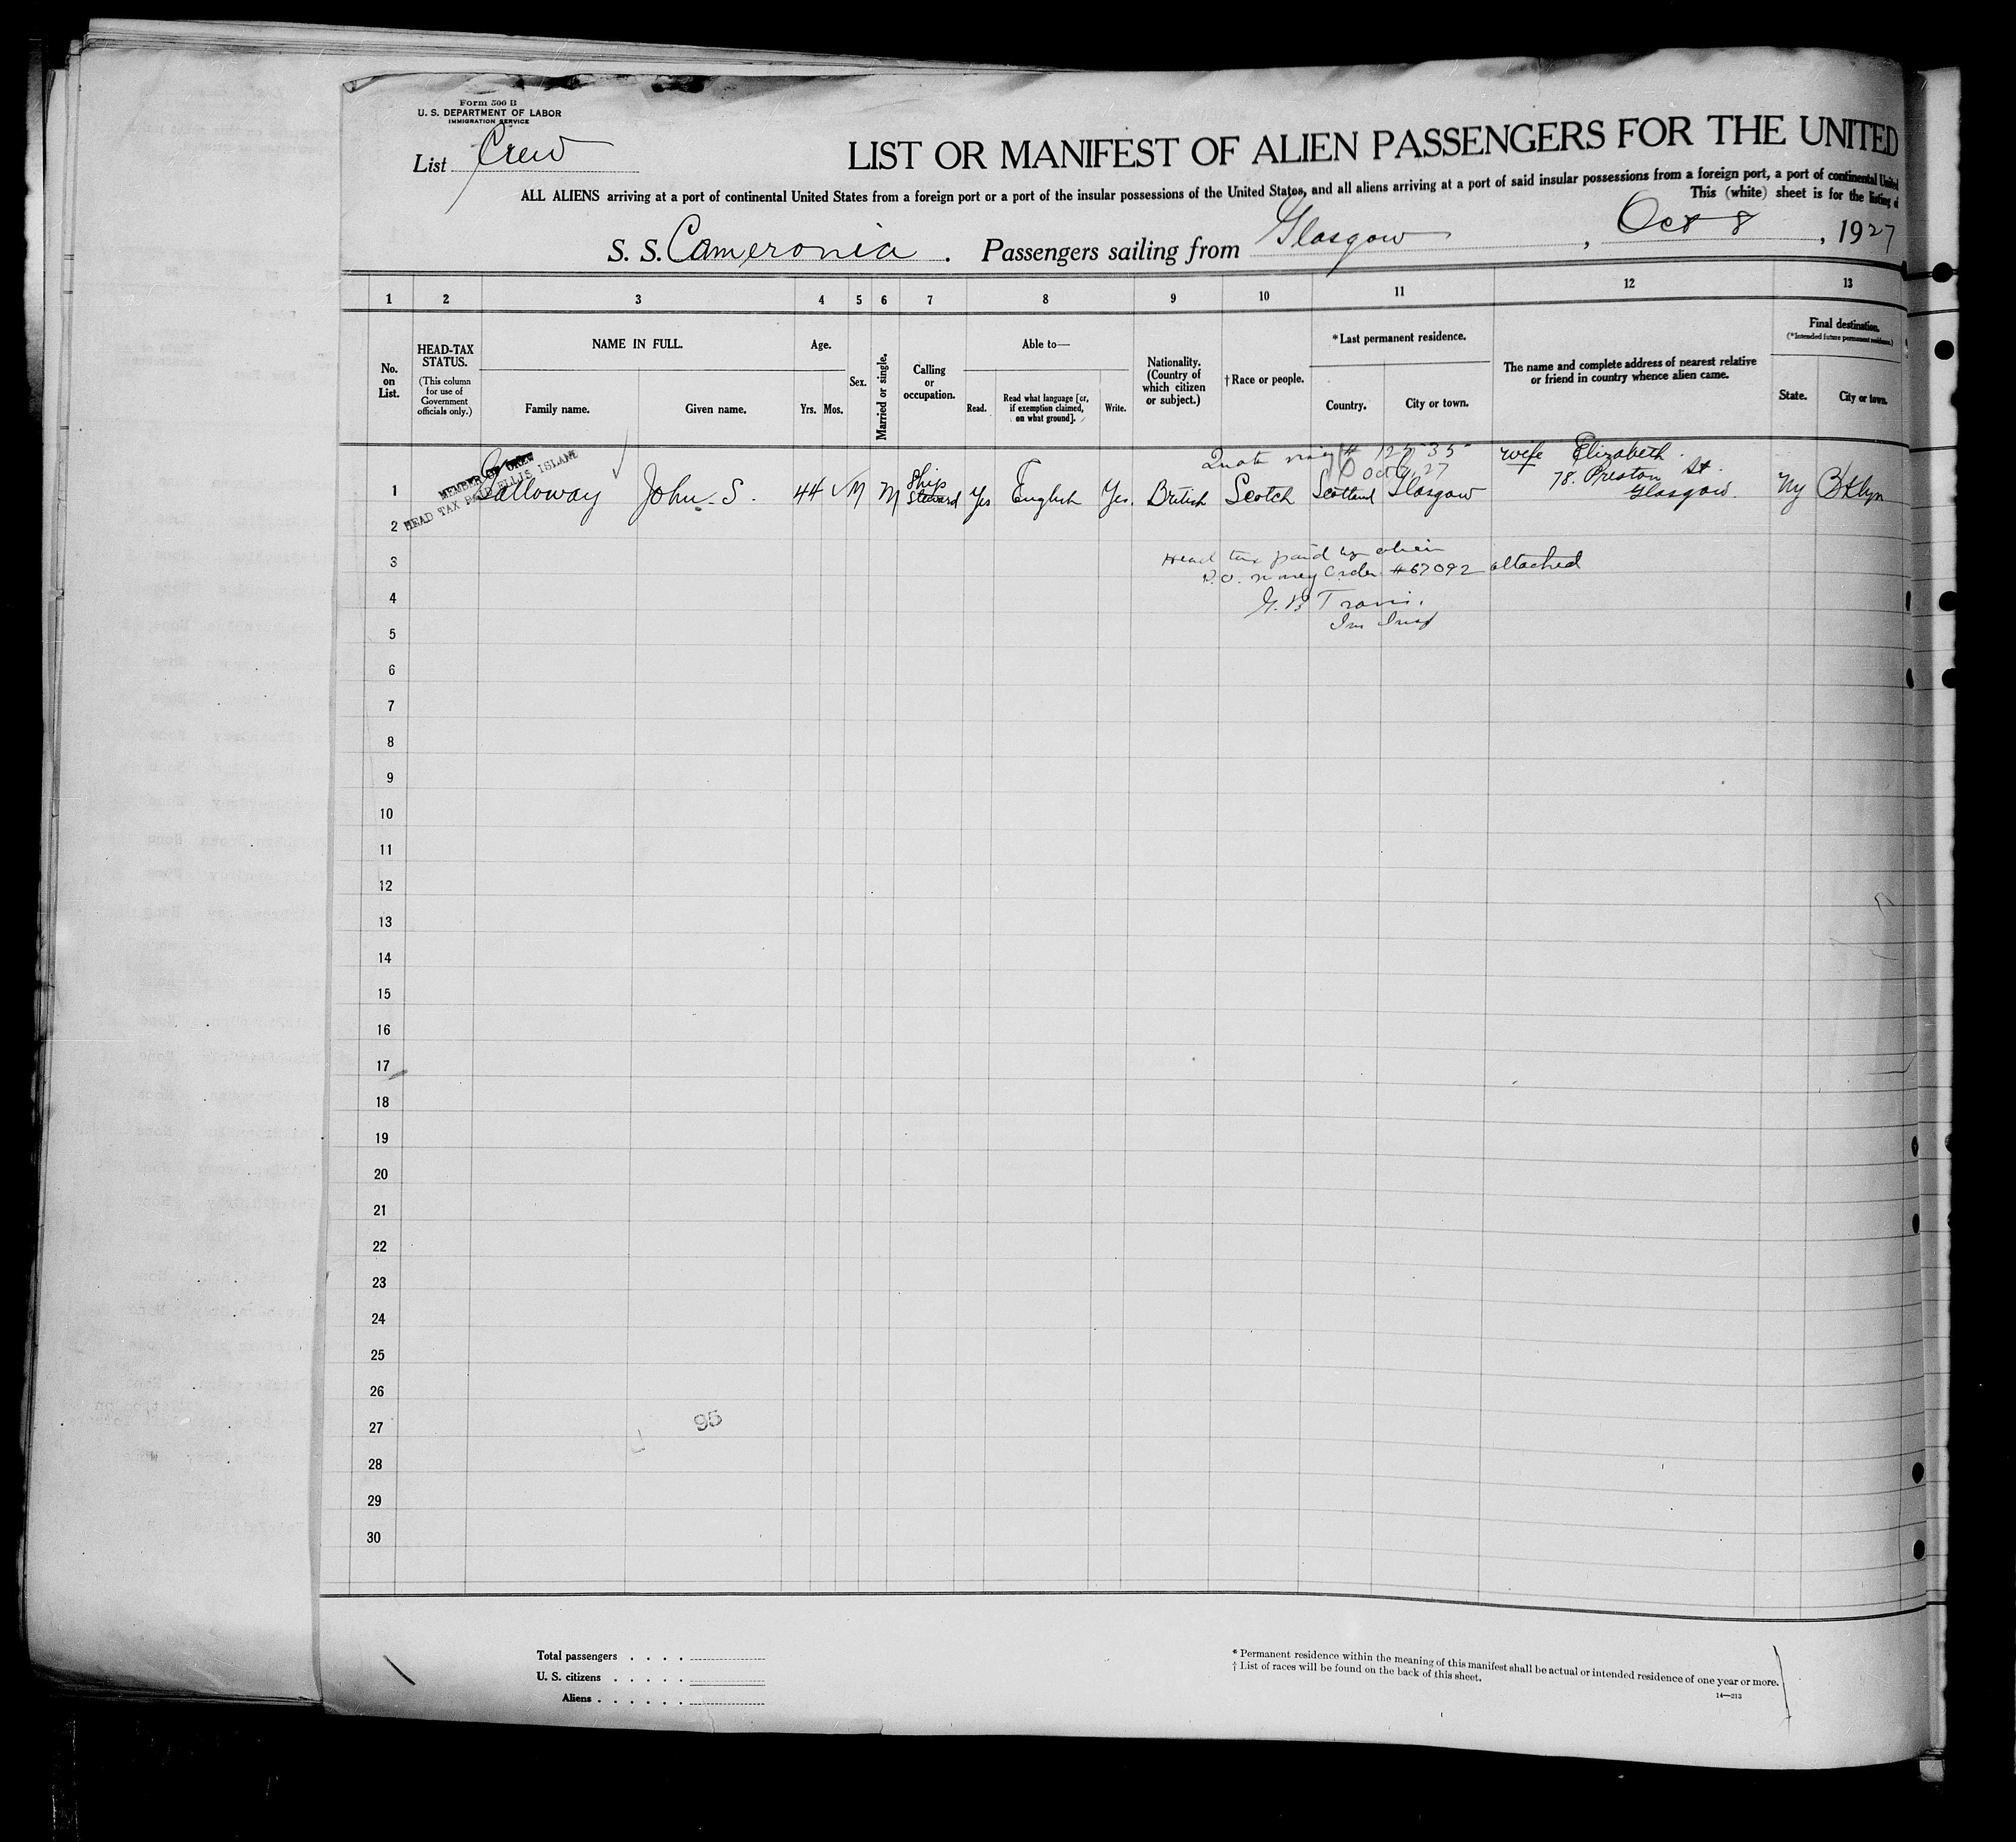 Form 500 B
U. S. DEPARTMENT OF LABOR
IMMIGRATION SERVICE
List Crew
LIST OR MANIFEST OF ALIEN PASSENGERS FOR THE UNITED
ALL ALIENS arriving at a port of continental United States from a foreign port or a port of the insular possessions of the United States, and all aliens arriving at a port of said insular possessions from a foreign port, a port of continental United
This (white) sheet is for the listing of
S. S. Cameronia . Passengers sailing from Glasgow , Oct 8 , 1927
1 2 3 4 5 6 7 8 9 10 11 12 13
No. on List.
HEAD-TAX STATUS.
(This column for use of Government officials only.)
NAME IN FULL.
Family name. Given name.
Age.
Yrs. Mos.
Sex.
Married or single.
Calling or occupation.
Able to—
Read. Read what language [or, if exemption claimed, on what ground]. Write.
Nationality. (Country of which citizen or subject.)
†Race or people.
*Last permanent residence.
Country. City or town.
The name and complete address of nearest relative or friend in country whence alien came.
Final destination.
(*Intended future permanent residence.)
State. City or town.
MEMBER OF CREW
HEAD TAX PAID ELLIS ISLAND
12535
Oct 27
wife Elizabeth
78. Preston St.
Glasgow.
1 Galloway John. S. 44 M M Ships Steward Yes English Yes. British Scotch Scotland Glasgow NY Bklyn
2
Head tax paid by alien
3
P.O. money order #67092 attached
4
5
6
7
8
9
10
11
12
13
14
15
16
17
18
19
20
21
22
23
24
25
26
95
27
28
29
30
Total passengers . . . .
U. S. citizens . . . . .
Aliens . . . . . .
* Permanent residence within the meaning of this manifest shall be actual or intended residence of one year or more.
† List of races will be found on the back of this sheet.
14—213